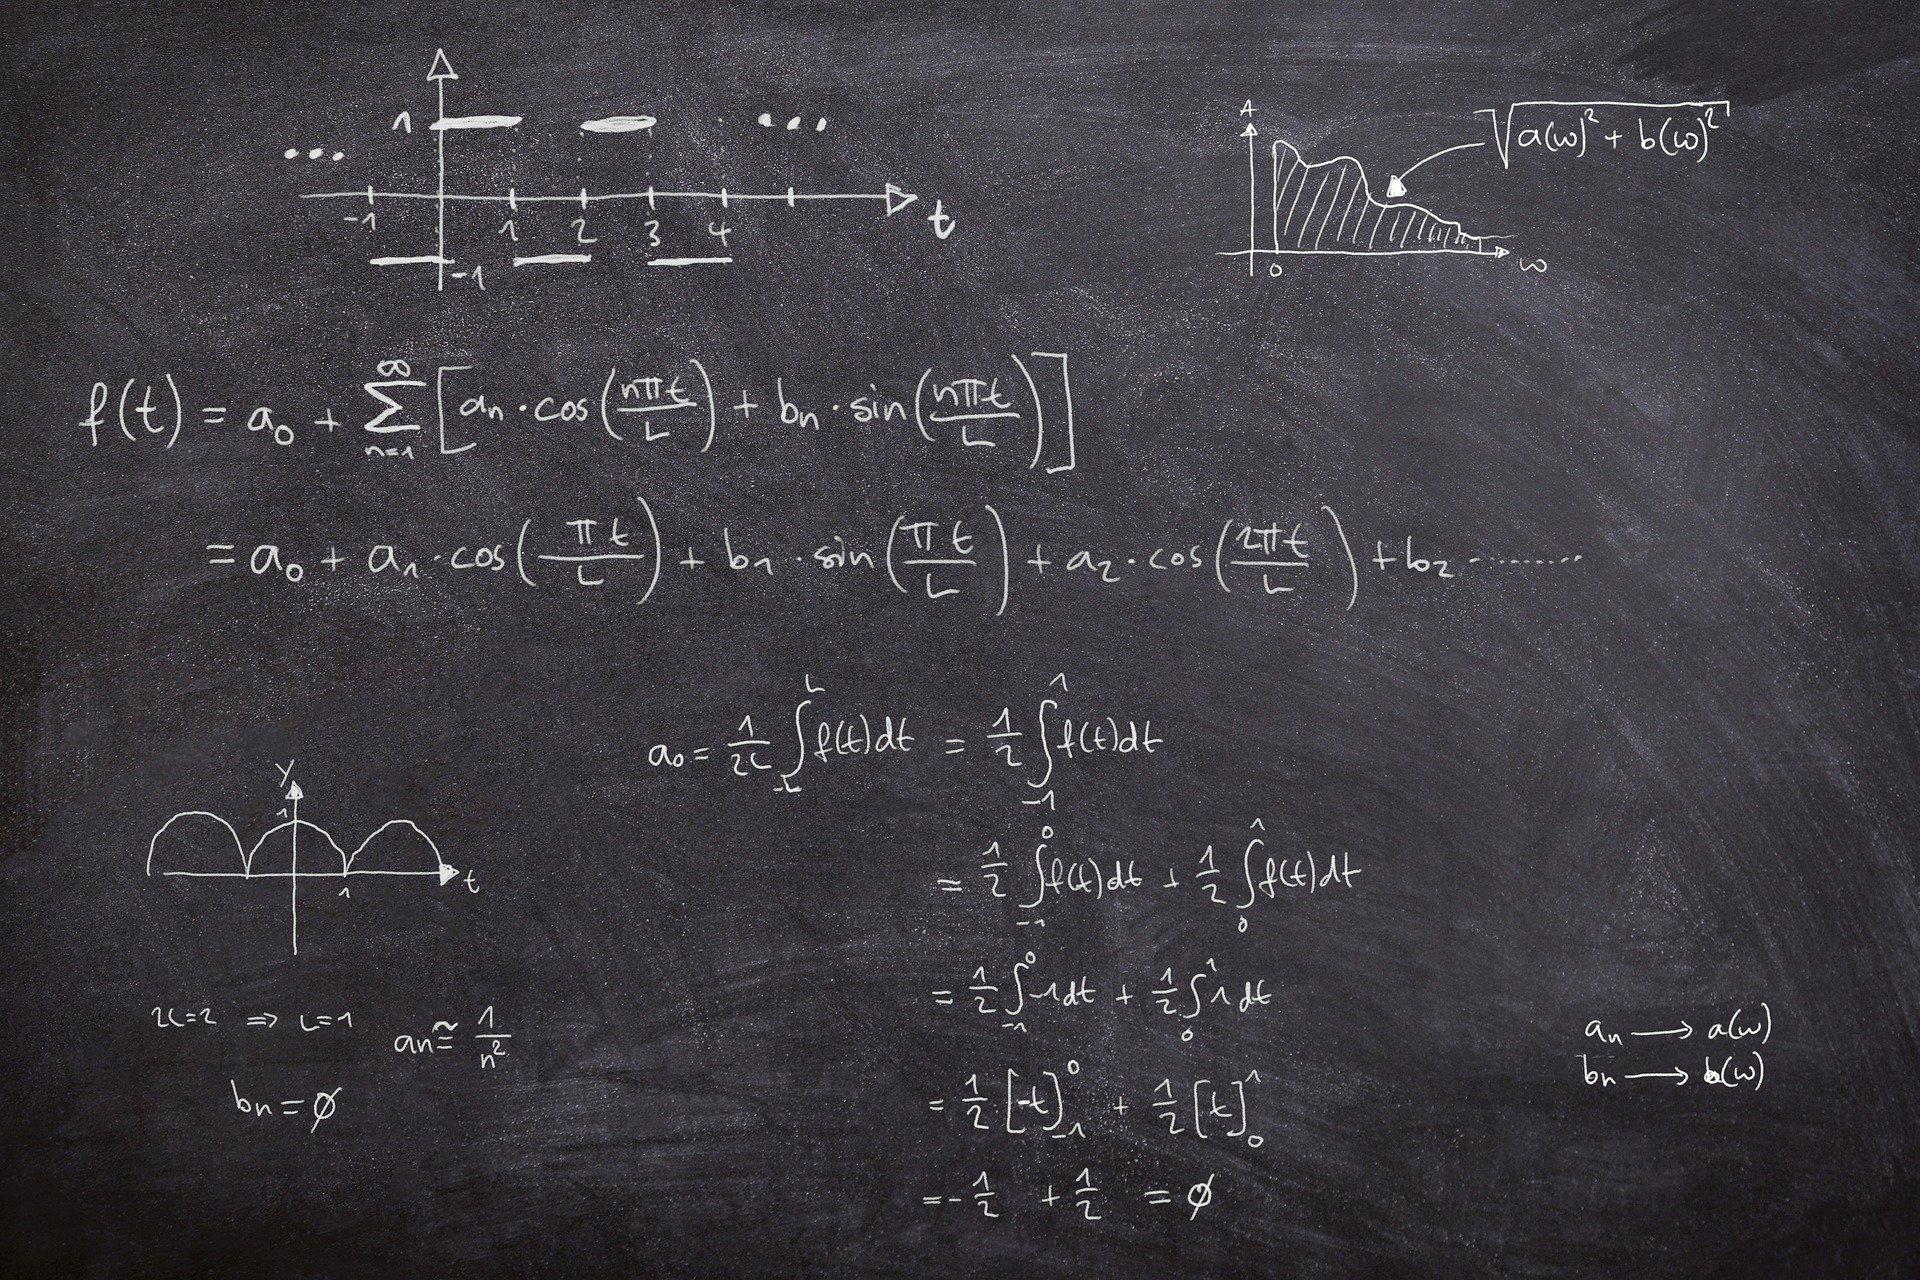 1
-1 1 2 3 4 t
-1
A
√(a(ω)² + b(ω)²)
0 ω
f(t) = a₀ + ∑_{n=1}^{∞} [aₙ · cos(nπt/L) + bₙ · sin(nπt/L)]
= a₀ + a₁ · cos(πt/L) + b₁ · sin(πt/L) + a₂ · cos(2πt/L) + b₂ ........
a₀ = 1/2L ∫_{-L}^{L} f(t)dt = 1/2 ∫_{-1}^{1} f(t)dt
= 1/2 ∫_{-1}^{0} f(t)dt + 1/2 ∫_{0}^{1} f(t)dt
= 1/2 ∫_{-1}^{0} -1dt + 1/2 ∫_{0}^{1} 1dt
= 1/2 [-t]_{-1}^{0} + 1/2 [t]_{0}^{1}
= -1/2 + 1/2 = ∅
y
1
1 t
2L=2 ⇒ L=1
aₙ ≅ 1/n²
bₙ = ∅
aₙ → a(ω)
bₙ → b(ω)